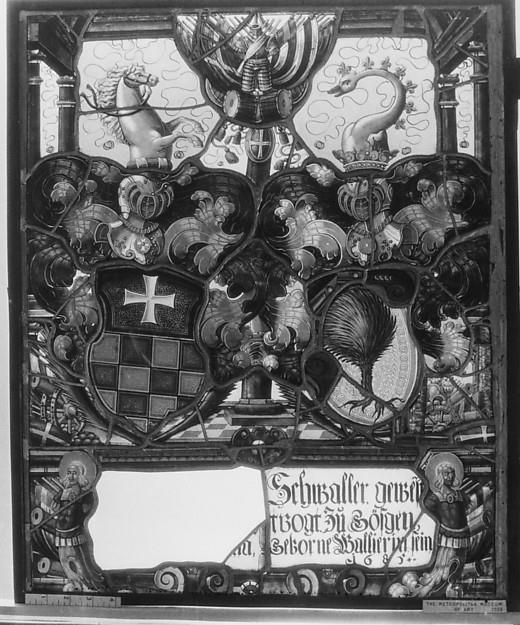 Schwaller gewes
tvogt Zů Gösgen,
Geborne Wallierin sein
THE METROPOLITAN MUSEUM
OF ART